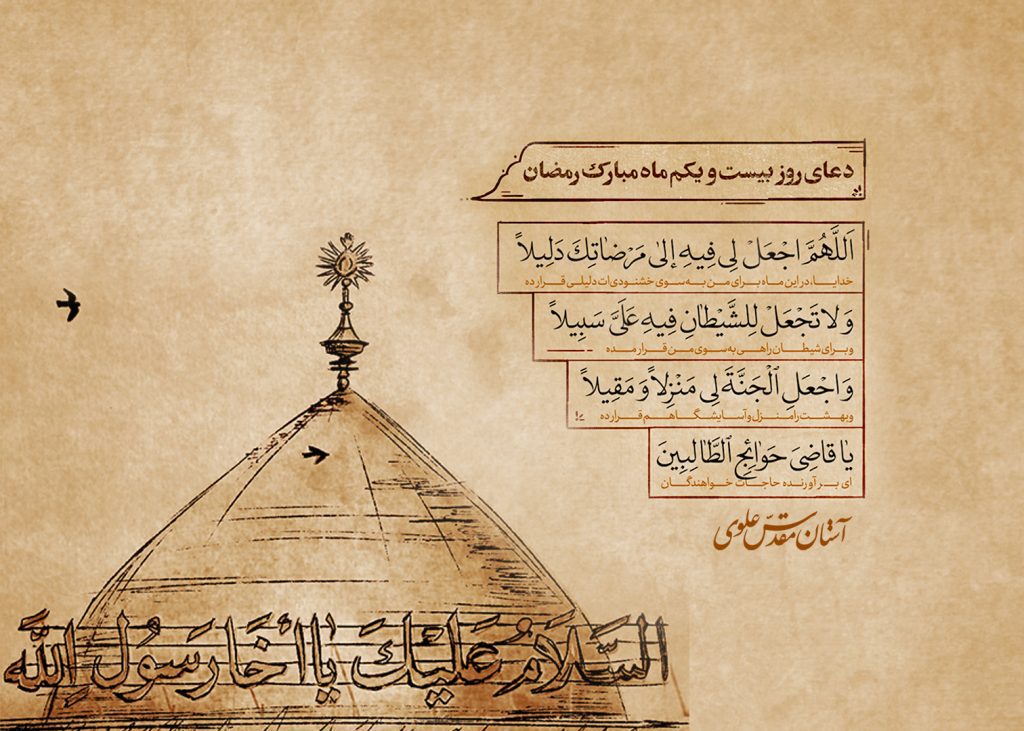 دعای روز بیست و یکم ماه مبارک رمضان
اَللَّهُمَّ اجْعَلْ لِی فِیهِ إلیٰ مَرْضٰاتِكَ دَلِیلاً
خدایا، در این ماه برای من به سوی خشنودی‌ات دلیلی قرار ده
وَ لاتَجْعَلْ لِلشَّیْطٰانِ فِیهِ عَلَیَّ سَبِیلاً
و برای شیطان راهی به سوی من قرار مده
وَ اجْعَلِ ٱلْجَنَّةَ لِی مَنْزِلاً وَ مَقِیلاً
و بهشت را منزل و آسایشگاهم قرار ده
یٰا قاضِیَ حَوٰائِجِ ٱلطَّالِبِینَ
ای برآورنده حاجات خواهندگان
آستان مقدّس علوی
السَّلَامُ عَلَیْكَ یٰا أَخَا رَسُولِ اللَّه